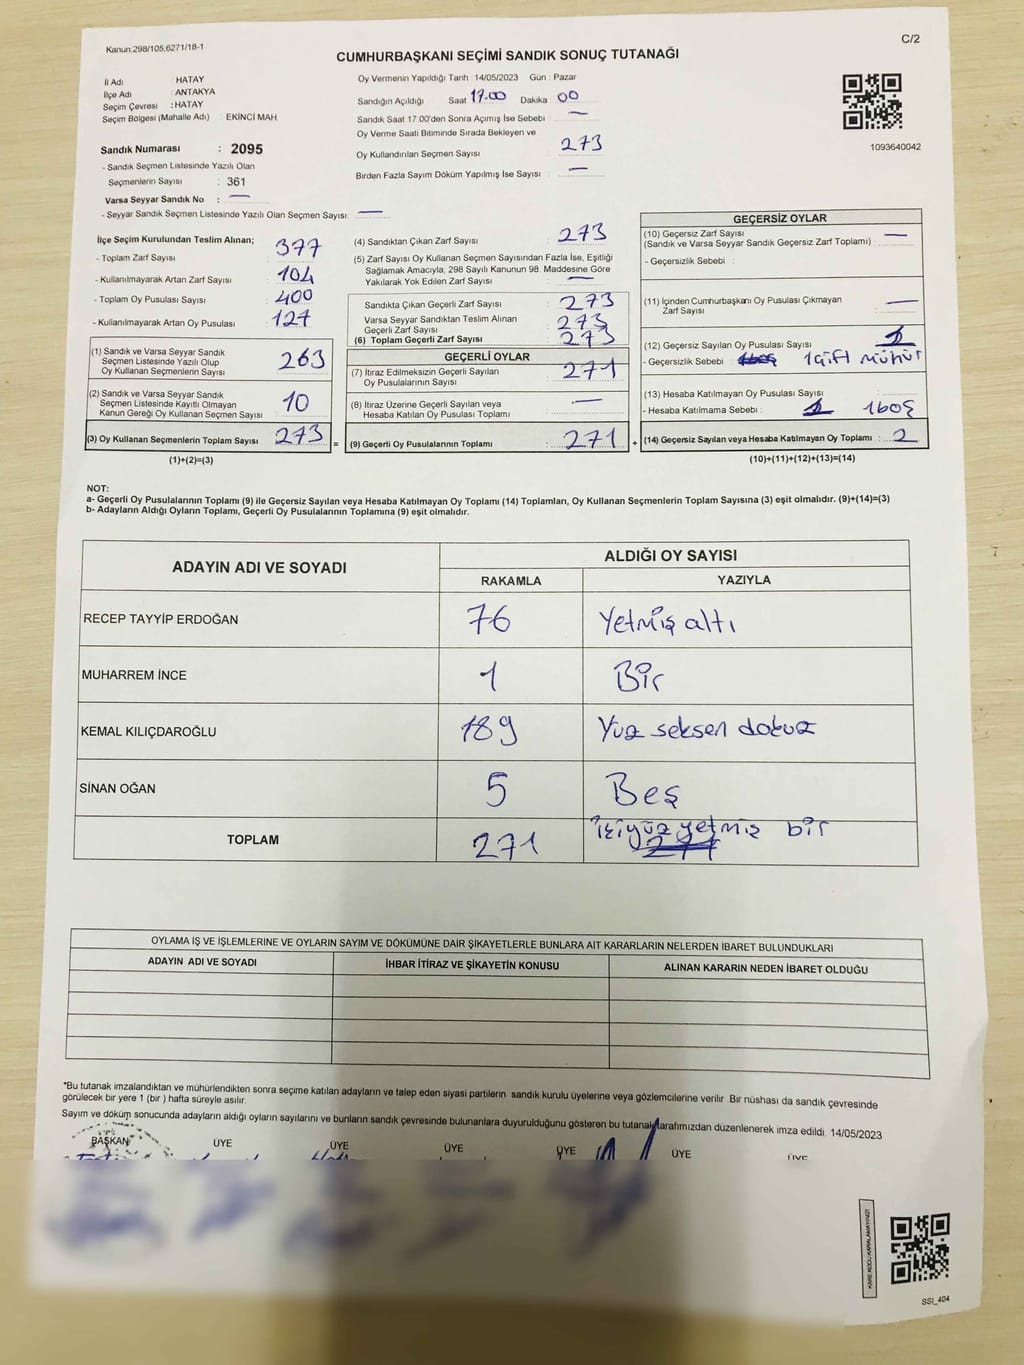 Kanun:298/105,6271/18-1
C/2
CUMHURBAŞKANI SEÇİMİ SANDIK SONUÇ TUTANAĞI
İl Adı : HATAY
İlçe Adı : ANTAKYA
Seçim Çevresi : HATAY
Seçim Bölgesi (Mahalle Adı) : EKİNCİ MAH
Sandık Numarası : 2095
- Sandık Seçmen Listesinde Yazılı Olan
Seçmenlerin Sayısı : 361
Varsa Seyyar Sandık No : —
- Seyyar Sandık Seçmen Listesinde Yazılı Olan Seçmen Sayısı: —
Oy Vermenin Yapıldığı Tarih : 14/05/2023 Gün : Pazar
Sandığın Açıldığı Saat 17.00 Dakika 00
Sandık Saat 17.00'den Sonra Açımış İse Sebebi : —
Oy Verme Saati Bitiminde Sırada Bekleyen ve
Oy Kullandırılan Seçmen Sayısı : 273
Birden Fazla Sayım Döküm Yapılmış İse Sayısı : —
1093640042
İlçe Seçim Kurulundan Teslim Alınan;
- Toplam Zarf Sayısı : 377
- Kullanılmayarak Artan Zarf Sayısı : 104
- Toplam Oy Pusulası Sayısı : 400
- Kullanılmayarak Artan Oy Pusulası : 127
(1) Sandık ve Varsa Seyyar Sandık
Seçmen Listesinde Yazılı Olup
Oy Kullanan Seçmenlerin Sayısı : 263
(2) Sandık ve Varsa Seyyar Sandık
Seçmen Listesinde Kayıtlı Olmayan
Kanun Gereği Oy Kullanan Seçmen Sayısı : 10
(3) Oy Kullanan Seçmenlerin Toplam Sayısı : 273 =
(1)+(2)=(3)
(4) Sandıktan Çıkan Zarf Sayısı : 273
(5) Zarf Sayısı Oy Kullanan Seçmen Sayısından Fazla İse, Eşitliği
Sağlamak Amacıyla; 298 Sayılı Kanunun 98. Maddesine Göre
Yakılarak Yok Edilen Zarf Sayısı : —
Sandıkta Çıkan Geçerli Zarf Sayısı : 273
Varsa Seyyar Sandıktan Teslim Alınan
Geçerli Zarf Sayısı : 273
(6) Toplam Geçerli Zarf Sayısı : 273
GEÇERLİ OYLAR
(7) İtiraz Edilmeksizin Geçerli Sayılan
Oy Pusulalarının Sayısı : 271
(8) İtiraz Üzerine Geçerli Sayılan veya
Hesaba Katılan Oy Pusulası Toplamı : —
(9) Geçerli Oy Pusulalarının Toplamı : 271 +
GEÇERSİZ OYLAR
(10) Geçersiz Zarf Sayısı —
(Sandık ve Varsa Seyyar Sandık Geçersiz Zarf Toplamı) :
- Geçersizlik Sebebi :
(11) İçinden Cumhurbaşkanı Oy Pusulası Çıkmayan
Zarf Sayısı : —
(12) Geçersiz Sayılan Oy Pusulası Sayısı : 1
- Geçersizlik Sebebi : 1 Çift mühür
(13) Hesaba Katılmayan Oy Pusulası Sayısı :
- Hesaba Katılmama Sebebi : 1 1 boş
(14) Geçersiz Sayılan veya Hesaba Katılmayan Oy Toplamı : 2
(10)+(11)+(12)+(13)=(14)
NOT:
a- Geçerli Oy Pusulalarının Toplamı (9) ile Geçersiz Sayılan veya Hesaba Katılmayan Oy Toplamı (14) Toplamları, Oy Kullanan Seçmenlerin Toplam Sayısına (3) eşit olmalıdır. (9)+(14)=(3)
b- Adayların Aldığı Oyların Toplamı, Geçerli Oy Pusulalarının Toplamına (9) eşit olmalıdır.
ADAYIN ADI VE SOYADI
ALDIĞI OY SAYISI
RAKAMLA YAZIYLA
RECEP TAYYİP ERDOĞAN 76 Yetmiş altı
MUHARREM İNCE 1 Bir
KEMAL KILIÇDAROĞLU 189 Yüz seksen dokuz
SİNAN OĞAN 5 Beş
TOPLAM 271 ikiyüz yetmiş bir
271
OYLAMA İŞ VE İŞLEMLERİNE VE OYLARIN SAYIM VE DÖKÜMÜNE DAİR ŞİKAYETLERLE BUNLARA AİT KARARLARIN NELERDEN İBARET BULUNDUKLARI
ADAYIN ADI VE SOYADI İHBAR İTİRAZ VE ŞİKAYETİN KONUSU ALINAN KARARIN NEDEN İBARET OLDUĞU
*Bu tutanak imzalandıktan ve mühürlendikten sonra seçime katılan adayların ve talep eden siyasi partilerin sandık kurulu üyelerine veya gözlemcilerine verilir. Bir nüshası da sandık çevresinde
görülecek bir yere 1 (bir ) hafta süreyle asılır.
Sayım ve döküm sonucunda adayların aldığı oyların sayılarını ve bunların sandık çevresinde bulunanlara duyurulduğunu gösteren bu tutanak tarafımızdan düzenlenerek imza edildi. 14/05/2023
BAŞKAN ÜYE ÜYE ÜYE ÜYE ÜYE ÜYE
KARE KODU KARALAMAYINIZ!
SSI_404